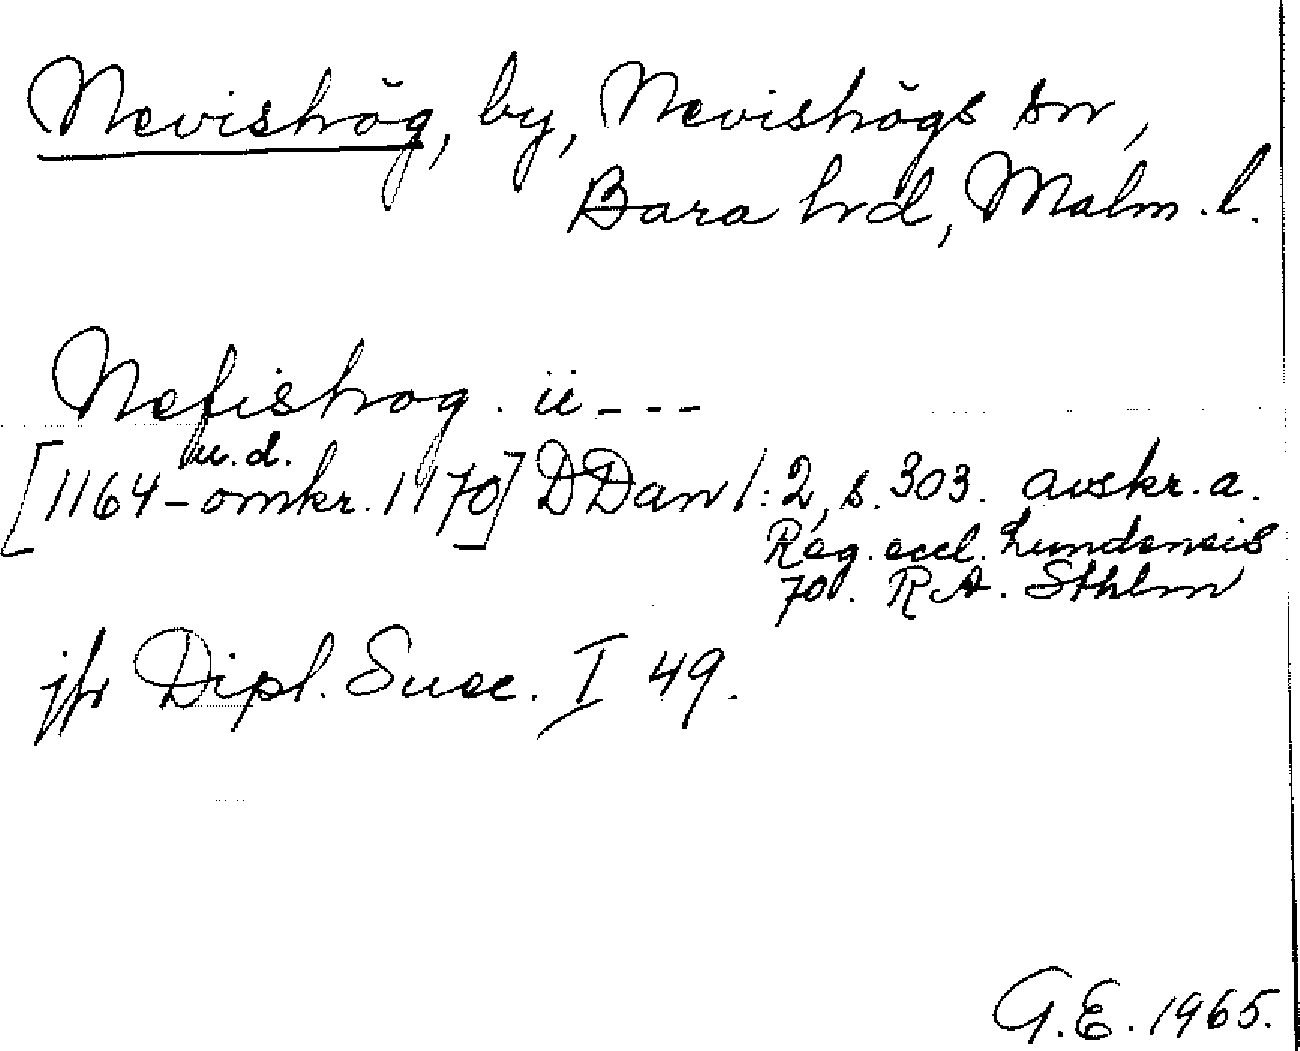 Nevishög, by, Nevishögs sn,
Bara hrd, Malm. l.
Nefishog. ii - - -
u. d.
[1164 - omkr. 1170] DDan 1:2, s. 303. avskr. a.
Reg. eccl. Lundensis
70. RA. Sthlm
jfr Dipl. Suec. I 49.
G.E. 1965.